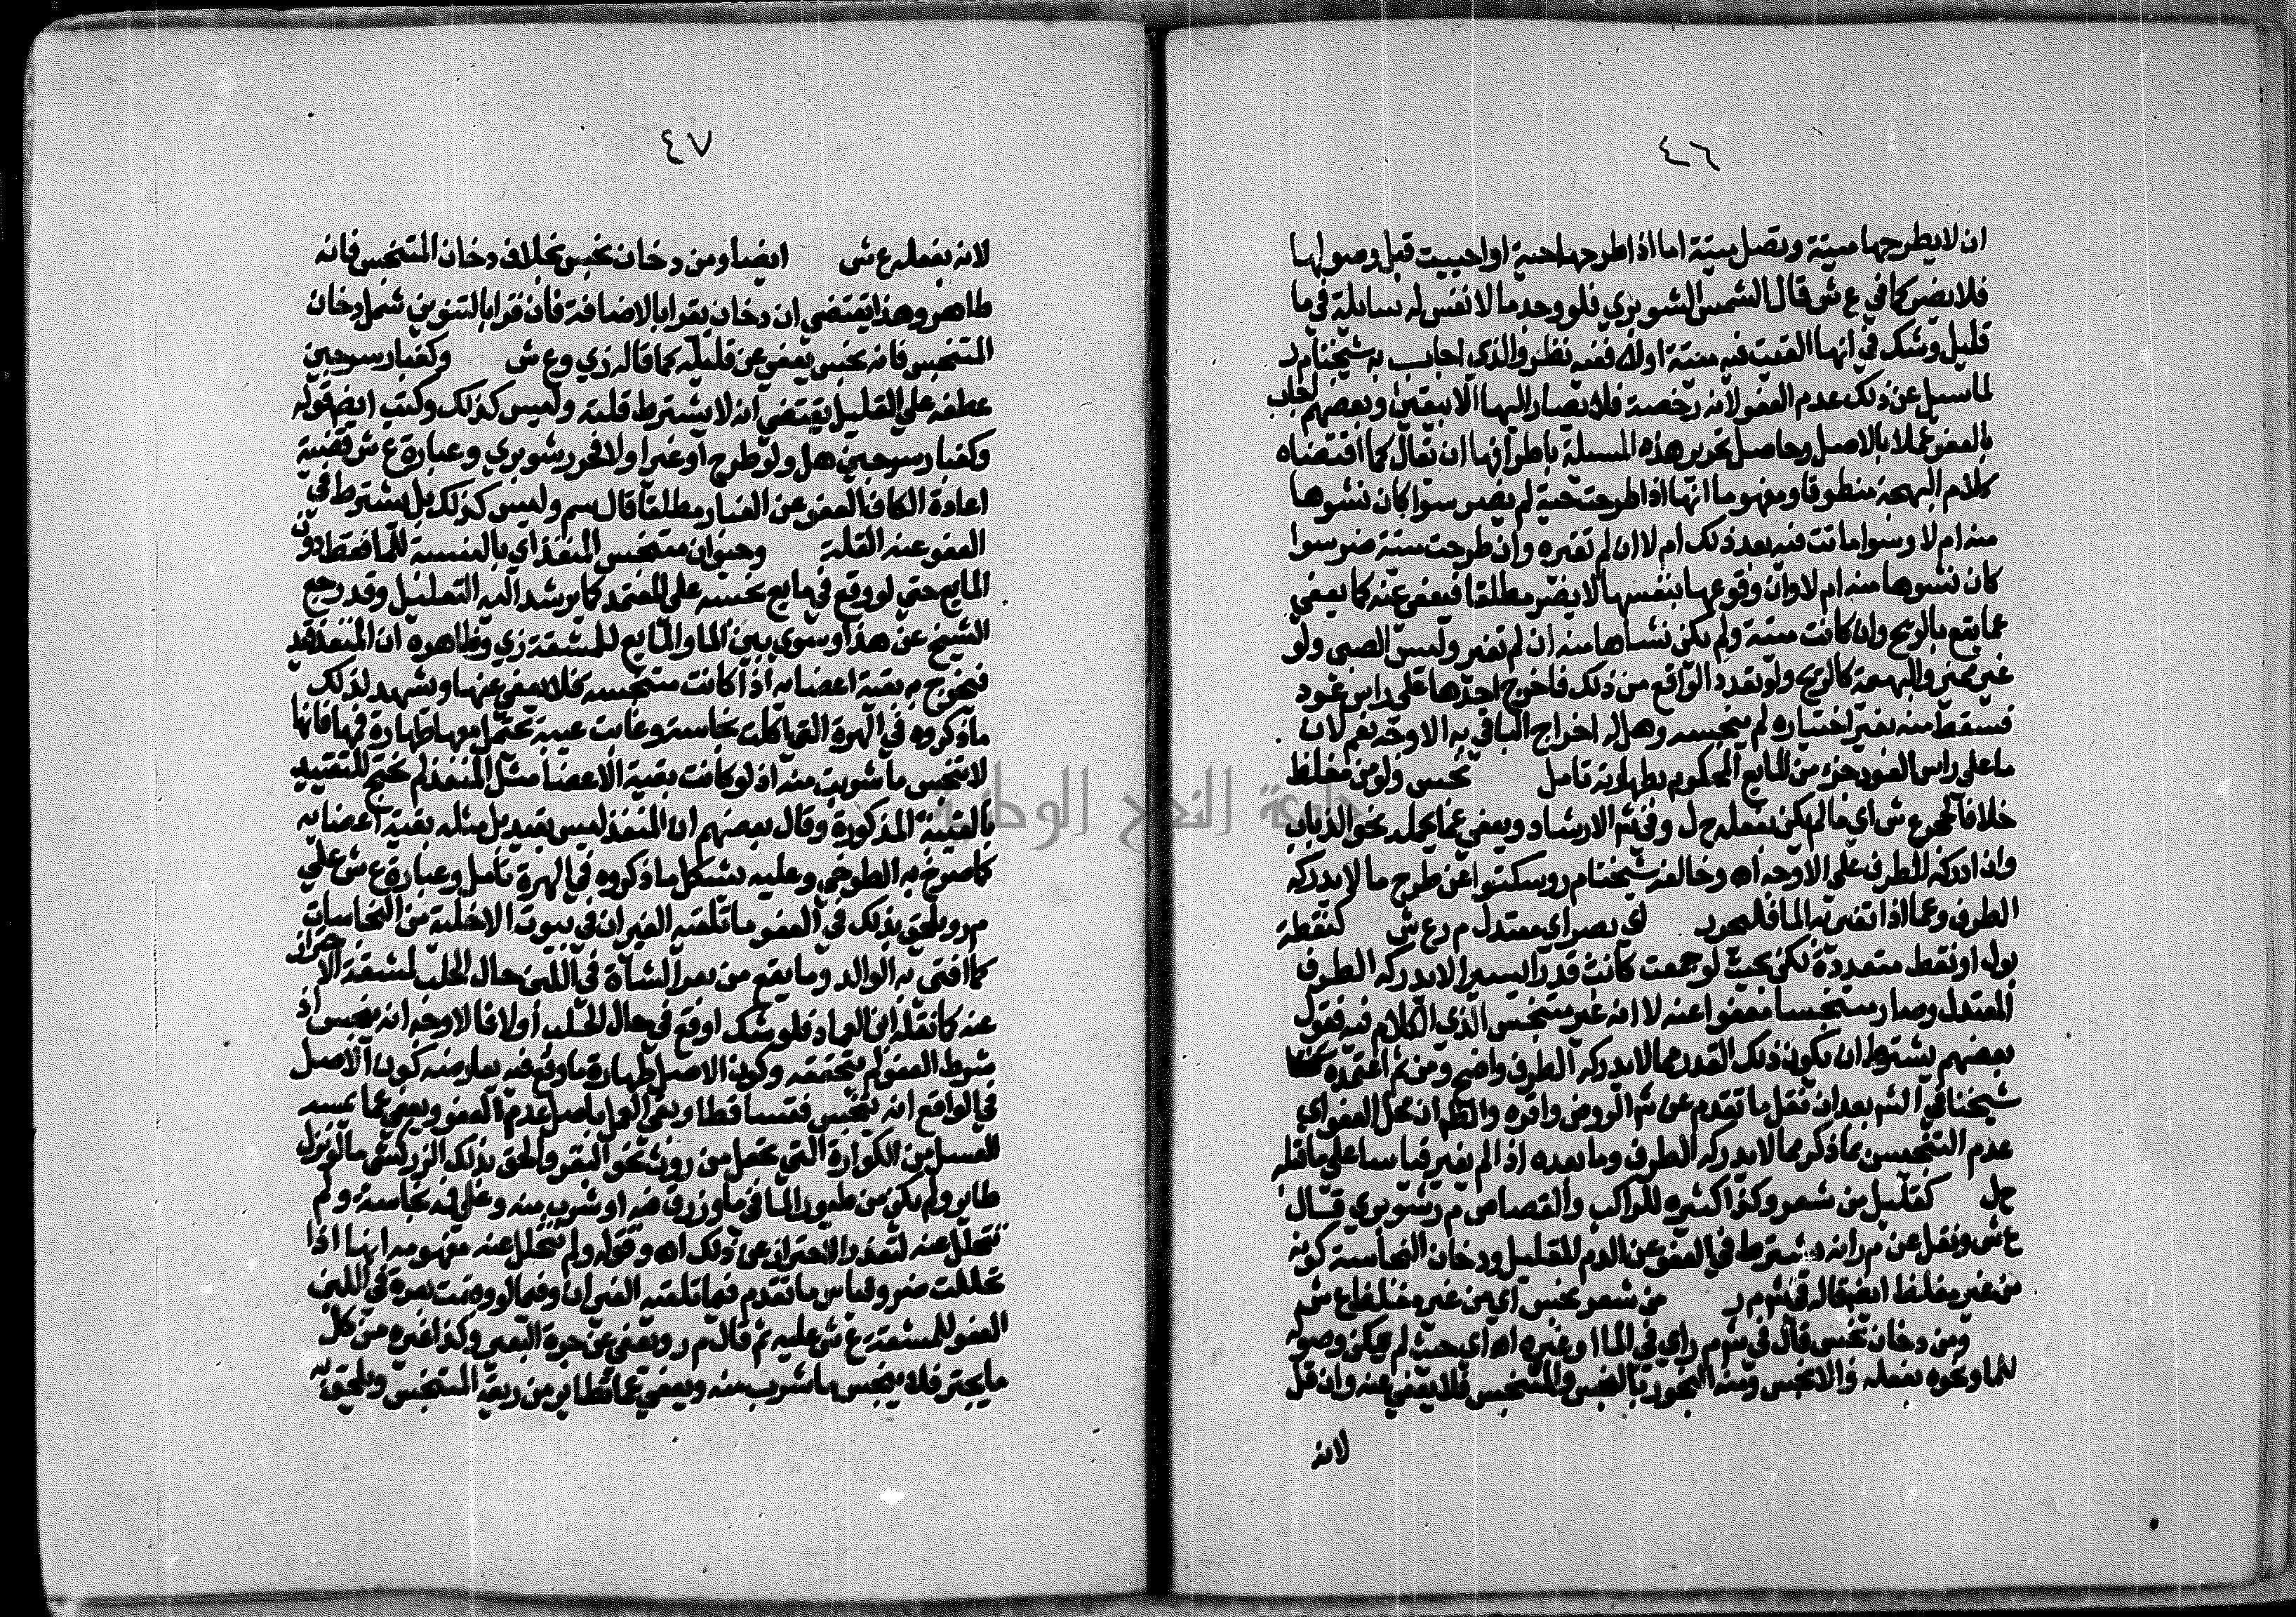 ٤٦
ان لا يطرحها ميتة وتصل ميتة اما اذا طرحها حية او احييت قبل وصولها
فلا يضر كما في ع ش قال الشمس الشوبري فلو وجد ما لا نفس له سائلة في ما
قليل وشك في انها القيت فيه ميتة اولا ففيه نظر والذي اجاب به شيخنا م ر
لما سيل عن ذلك عدم العفو لانه رخصة فلا يصار اليها الا بيقين وبعضهم اجاب
بالعفو عملا بالاصل وحاصل تحرير هذه المسيلة باطرافها ان يقال كما اقتضاه
كلام البهجة منطوقا ومفهوما انها اذا طرحت حية لم يضر سوا كان نشوها
منه ام لا وسوا ماتت فيه بعد ذلك ام لا ان لم تغيره وان طرحت ميتة ضر سوا
كان نشوها منه ام لا وان وقوعها بنفسها لا يضر مطلقا فيعفى عنه كما يعفي
عما يقع بالريح وان كانت ميتة ولم يكن نشاها منه ان لم تغير وليس الصبي ولو
غير مميز والبهيمة كالريح ولو تعدد الواقع من ذلك فاخرج احدها على راس عود
فسقط منه بغير اختياره لم ينجسه وهل له اخراج الباقي به الاوجه نعم لان
ما على راس العود جزء من المايع المحكوم بطهارته تامل نجس ولو من مغلظ
خلافا لحج ع ش اي ما لم يكن بفعله ح ل وفي ش الارشاد ويعفي عما يحمله نحو الذباب
وان ادركه الطرف على الاوجه اه وخالفه شيخنا م ر وسكتوا عن طرح ما لا يدركه
الطرف وعما اذا تغير به الما فليحرر اي بصر اي معتدل م ر ع ش كنقطة
بول او نقط متعددة لكن بحيث لو جمعت كانت قدرا يسيرا لا يدركه الطرف
المعتدل وصار متنجسا معفوا عنه لا انه غير متنجس الذي الكلام فيه فقول
بعضهم يشترط ان يكون ذلك القدر مما لا يدركه الطرف واضح ومن ثم اعتمده
شيخنا في الشم بعد ان نقل ما تقدم عن ش الروض واقره والظ ان محل العفو اي
عدم التنجيس بما ذكر مما لا يدركه الطرف وما بعده اذا لم يغير قياسا على ما قبله
ح ل كقليل من شعر وكذا كثيره للراكب والقصاص م ر شوبري قال
ع ش ونقل عن م ر انه يشترط في العفو عن الدم القليل ودخان النجاسة كونه
من غير مغلظ ايضا قاله في ش م ر من شعر نجس اي من غير مغلظ ع ش
ومن دخان نجس قال في ش م ر اي في الما او غيره اه اي حيث لم يكن وصوله
للما ونحوه بفعله والا نجس ومنه البخور بالنجس والمتنجس فلا يعفي عنه وان قل
لانه
٤٧
لانه بفعله ع ش ايضا ومن دخان نجس بخلاف دخان المتنجس فانه
طاهر وهذا يقتضي ان دخان يقرا بالاضافة فان قرا بالتنوين شمل دخان
المتنجس فانه نجس يعفي عن قليله كما قاله زي وع ش وكغبار سرجين
عطفه على القليل يقتضي انه لا يشترط قلته وليس كذلك وكتب ايضا قوله
وكغبار سرجين هل ولو طرح او غيرا ولا فحرر شوبري وعبارة ع ش قضية
اعادة الكاف العفو عن الغبار مطلقا قال سم وليس كذلك بل يشترط في
العفو عنه القلة وحيوان متنجس المنفذ اي بالنسبة للما فقط دون
المايع حتي لو وقع في مايع نجسه على المعتمد كما يرشد اليه التعليل وقد رجع
الشيخ عن هذا وسوى بين الما والمايع للمشقة زي وظاهره ان المنفذ قيد
فيخرج به بقية اعضائه اذا كانت متنجسة فلا يعفي عنها ويشهد لذلك
ما ذكروه في الهرة التي اكلت نجاسة وغابت غيبة تحتمل معها طهارة فمها فانها
لا تنجس ما شربت منه اذ لو كانت بقية الاعضا مثل المنفذ لم تحتج للتقييد
بالغيبة المذكورة وقال بعضهم ان المنفذ ليس بقيد بل مثله بقية اعضائه
كما صرح به الطوخي وعليه يشكل ما ذكروه في الهرة تامل وعبارة ع ش علي
م ر ويلحق بذلك في العفو ما تلقيه الفيران في بيوت الاخلية من النجاسات
كما افتى به الوالد وما يقع من بعر الشاة في اللبن حال الحلب لمشقة الاحتراز
عنه كما نقله ابن العماد فلو شك اوقع في حال الحلب أو لا فالاوجه انه ينجس اذ
شرط العفو لم نتحققه وكون الاصل طهارة ما وقع فيه يعارضه كون الاصل
في الواقع انه ينجس فتساقطا وبقي العمل باصل عدم العفو ويعفي عما يمسه
العسل من الكوارة التي تجعل من روث نحو البقر والحق بذلك الزركشي ما لو نزل
طاير ولم يكن من طيور الما في ما وزرق فيه او شرب منه وعلى فمه نجاسة ولم
تتحلل عنه لتعذر الاحتراز عن ذلك اه وقوله ولم تتحلل عنه مفهومه انها اذا
تحللت ضر وقياس ما تقدم فيما تلقيه الفيران وفيما لو وقعت بعرة في اللبن
العفو للمشقة ع ش عليه ثم قال م ر ويعفي عن جرة البعير وكذا غيره من كل
ما يجتر فلا ينجس ما شرب منه ويعفي عما تطاير من ريقه المتنجس ويلحق به